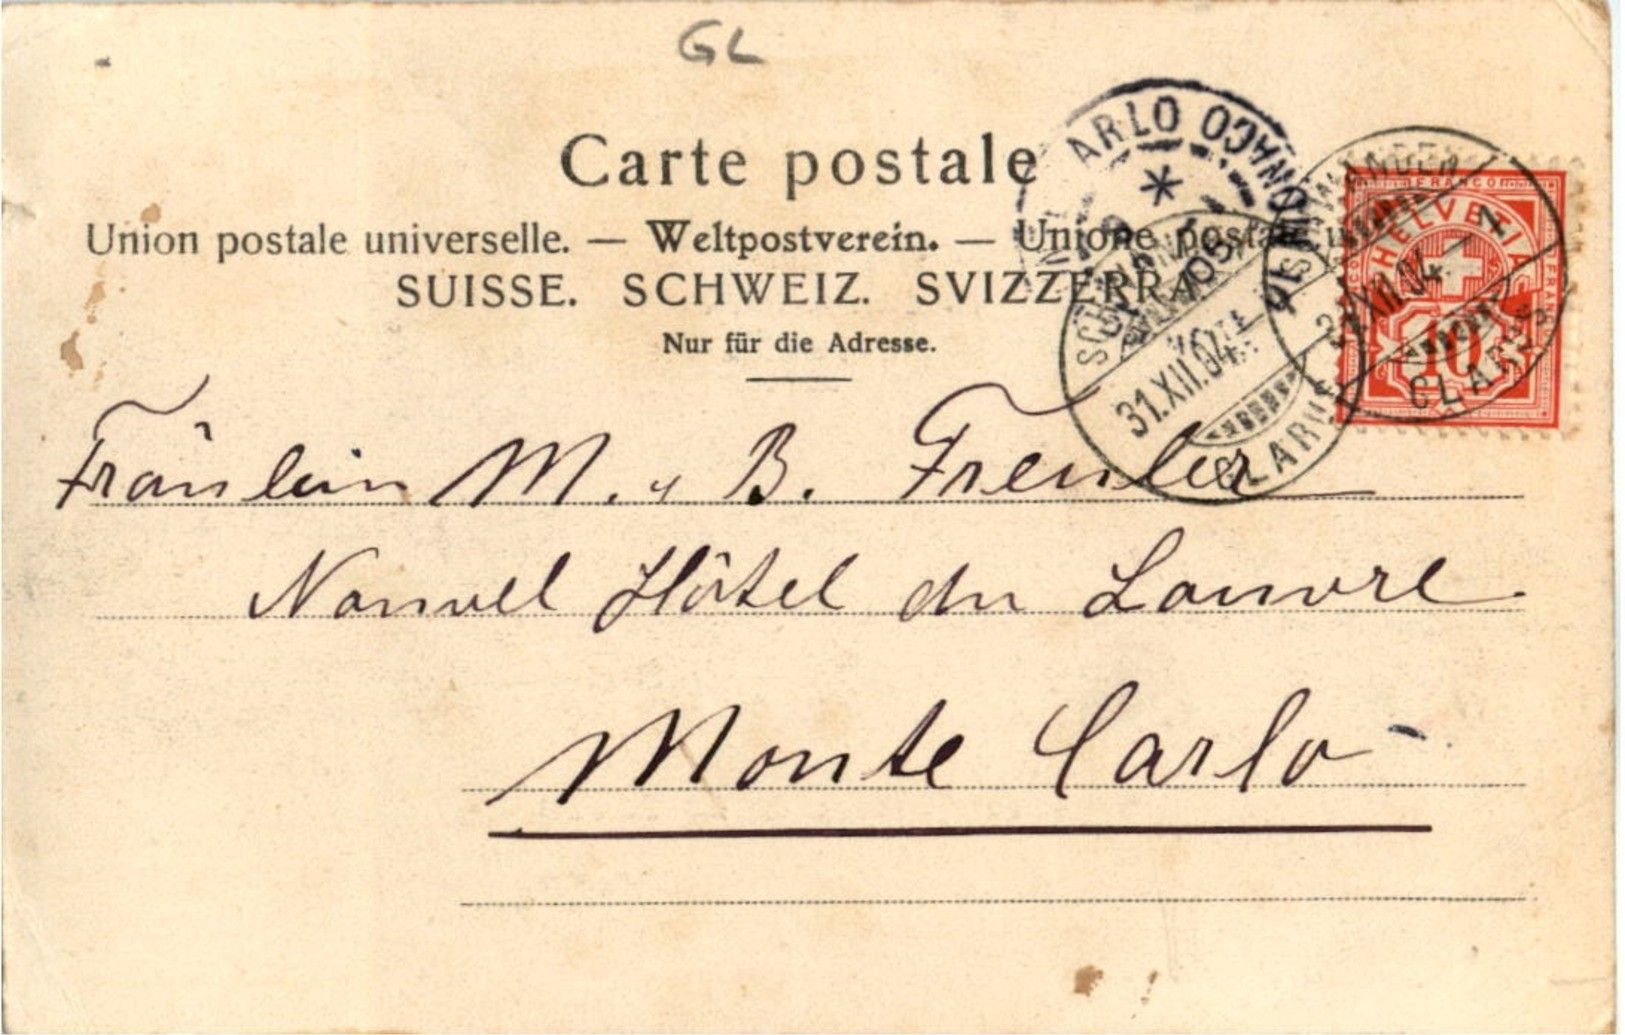 GL
Carte postale
Union postale universelle. — Weltpostverein. — Unione postale
SUISSE. SCHWEIZ. SVIZZERA
Nur für die Adresse.
ARLO MONACO
05
SCHWANDEN
31.XII.04
GLARUS
SCHWANDEN
31.XII.04. — 7
GLARUS
FRANCO
HELVETIA
FRANCO
10
Fräulein M. & B. Freuler
Nouvel Hôtel du Louvre.
Monte Carlo